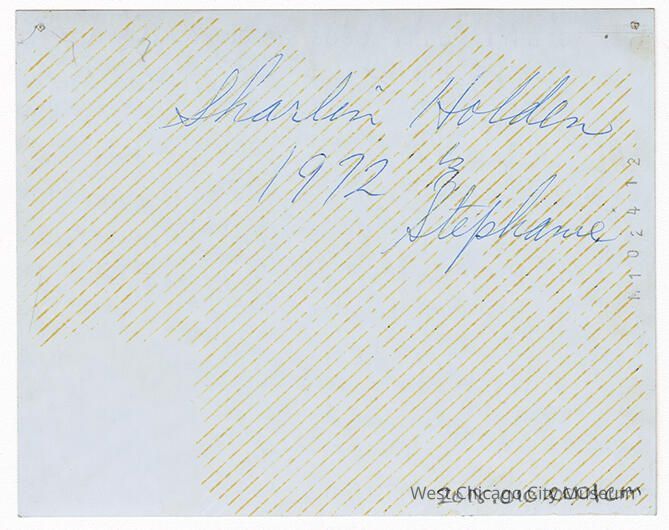 Sharlin Holden
1972 &
Stephanie
M102412
West Chicago City Museum